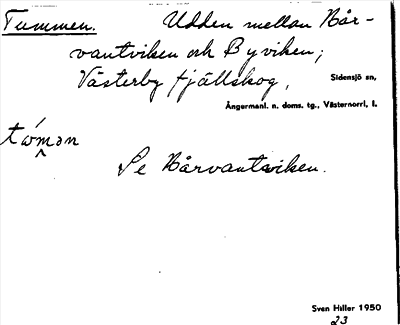 Tummen. Udden mellan Når-
vantviken och Byviken;
Västerby fjällskog, Sidensjö sn,
Ångermanl. n. doms. tg., Västernorrl. l.
Se Nårvantviken.
Sven Hiller 1950
23